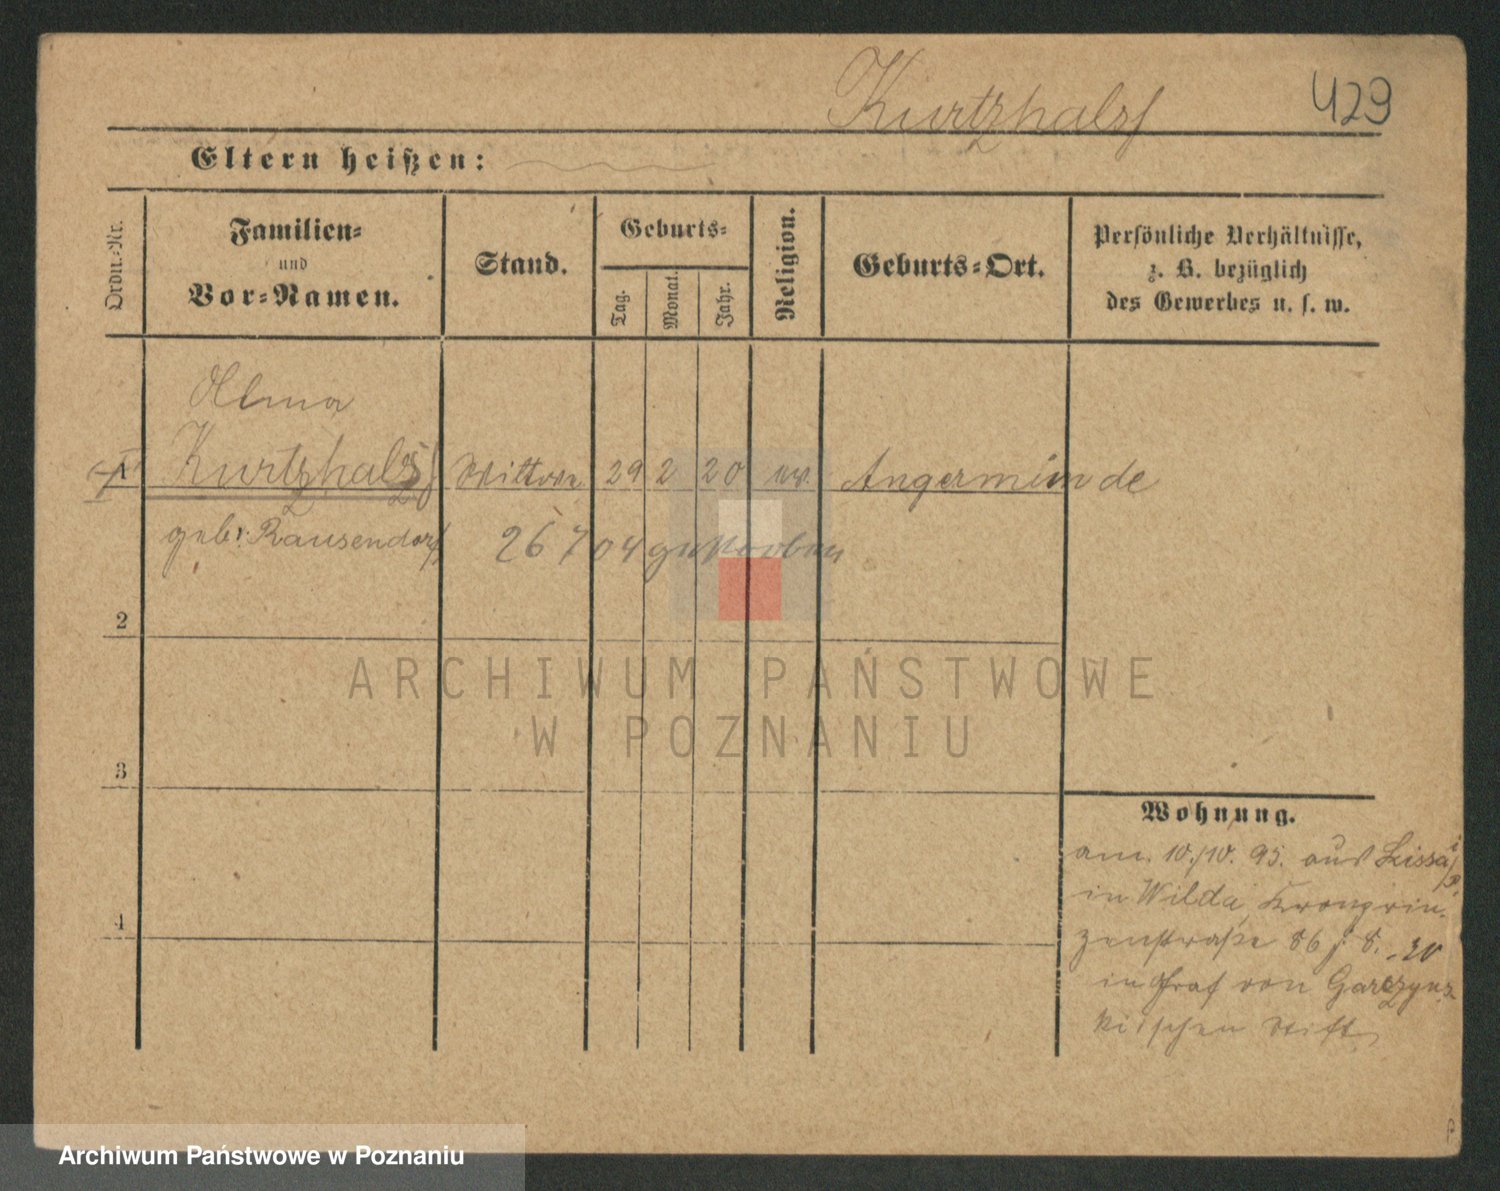 Kurtzhalss
429
Eltern heißen:
Ordn.-Nr.
Familien-
und
Vor-Namen.
Stand.
Geburts-
Tag.
Monat.
Jahr.
Religion.
Geburts-Ort.
Persönliche Verhältnisse,
z. B. bezüglich
des Gewerbes u. s. w.
Alma
1 Kurtzhalss Wittwe 29 2 20 ev. Angermünde
geb. Rausendorf 26 7 04 gestorben
2
3
4
Wohnung.
am 10./10. 95. aus Lissa i/P.
in Wilda, Kronprin-
zenstraße 86
in Graf von Garczyns-
kiischen Stift
ARCHIWUM PAŃSTWOWE
W POZNANIU
Archiwum Państwowe w Poznaniu